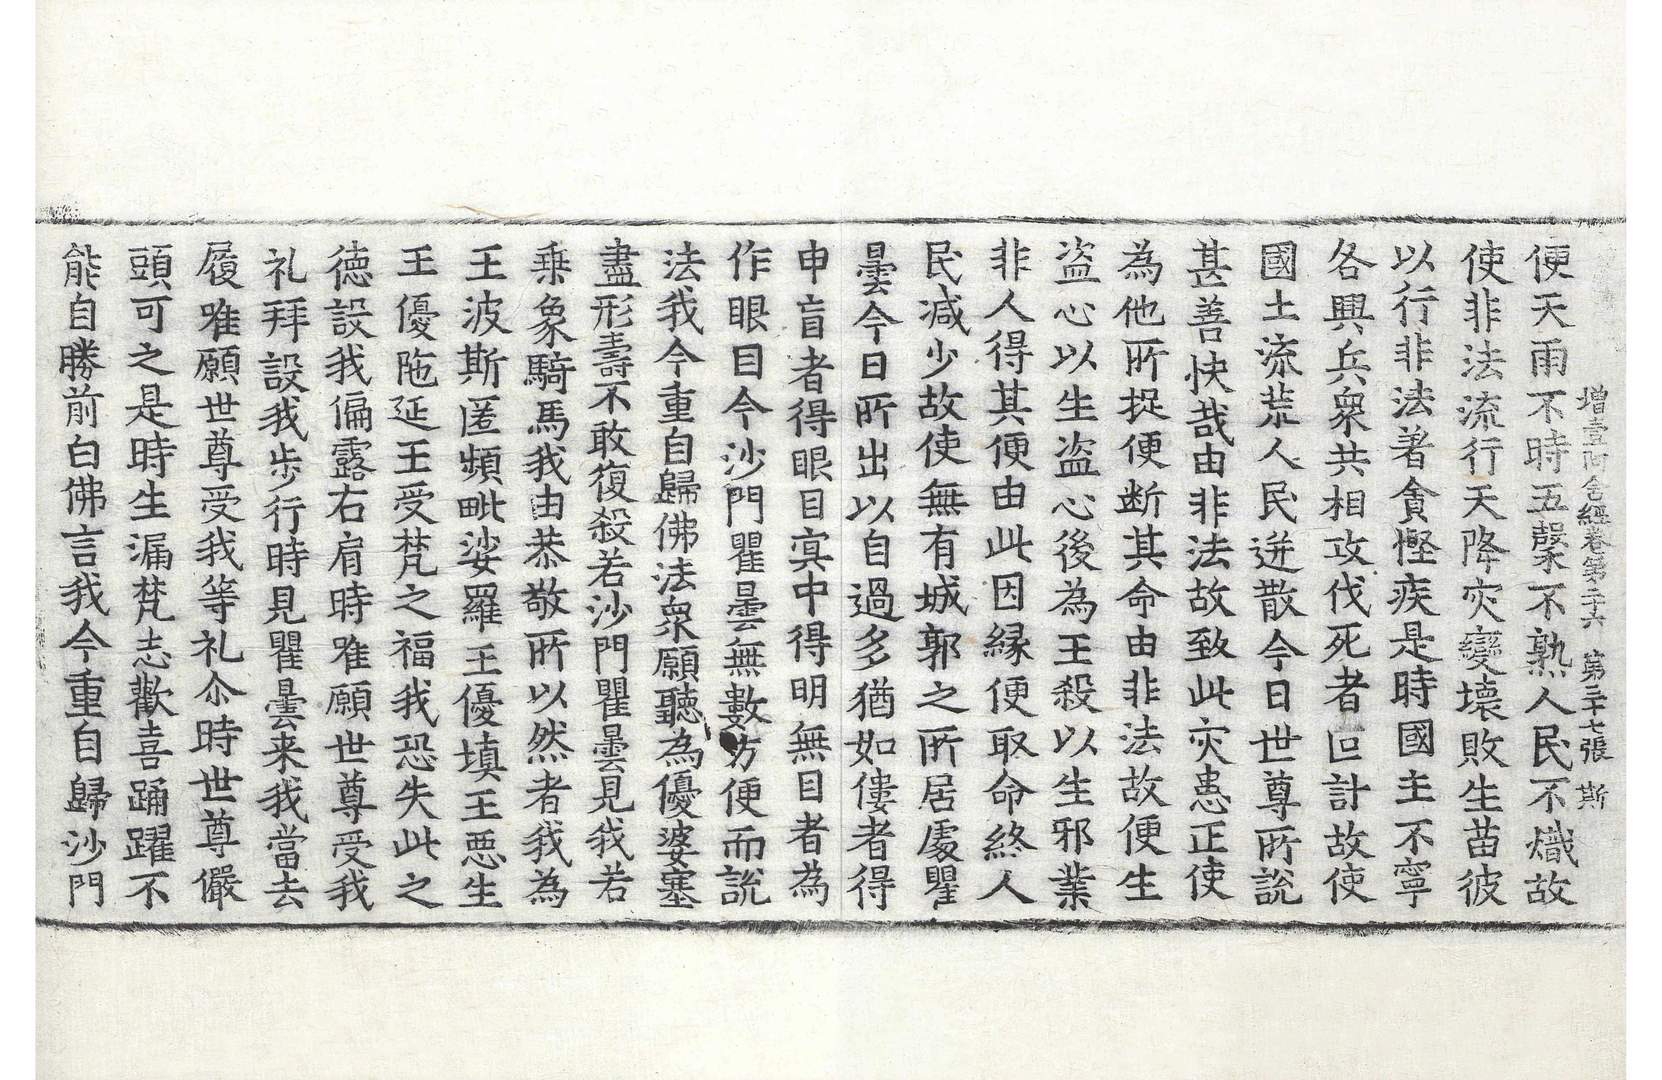 增壹阿含經卷第二十六 第二十七張 斯
便天雨不時五糓不熟人民不熾故
使非法流行天降灾變壞敗生苗彼
以行非法著貪慳疾是時國主不寧
各興兵衆共相攻伐死者叵計故使
國土流荒人民迸散今日世尊所說
甚善快哉由非法故致此灾患正使
為他所捉便断其命由非法故便生
盜心以生盜心後為王殺以生邪業
非人得其便由此因緣便取命終人
民减少故使無有城郭之所居處瞿
曇今日所出以自過多猶如僂者得
申盲者得眼目㝠中得明無目者為
作眼目今沙門瞿曇無數方便而說
法我今重自歸佛法衆願聽為優婆塞
盡形壽不敢復殺若沙門瞿曇見我若
乗象騎馬我由恭敬所以然者我為
王波斯匿頻毗娑羅王優填王悪生
王優陁延王受梵之福我恐失此之
德設我偏露右肩時唯願世尊受我
礼拜設我步行時見瞿曇来我當去
履唯願世尊受我等礼尒時世尊儼
頭可之是時生漏梵志歡喜踊躍不
能自勝前白佛言我今重自歸沙門